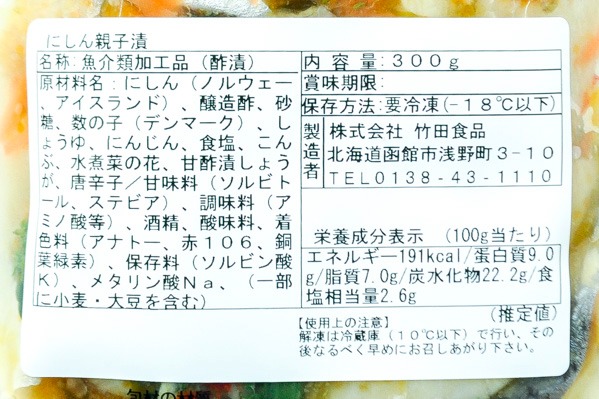 にしん親子漬
名称:魚介類加工品（酢漬）
原材料名:にしん（ノルウェー
、アイスランド）、醸造酢、砂
糖、数の子（デンマーク）、し
ょうゆ、にんじん、食塩、こん
ぶ、水煮菜の花、甘酢漬しょう
が、唐辛子／甘味料（ソルビト
ール、ステビア）、調味料（ア
ミノ酸等）、酒精、酸味料、着
色料（アナトー、赤１０６、銅
葉緑素）、保存料（ソルビン酸
Ｋ）、メタリン酸Ｎａ、（一部
に小麦・大豆を含む）
内容量:３００ｇ
賞味期限:
保存方法:要冷凍(－１８℃以下)
製造者
株式会社 竹田食品
北海道函館市浅野町３－１０
ＴＥＬ０１３８－４３－１１１０
栄養成分表示 (100g当たり)
エネルギー191kcal/蛋白質9.0
g/脂質7.0g/炭水化物22.2g/食
塩相当量2.6g
(推定値)
【使用上の注意】
解凍は冷蔵庫（１０℃以下）で行い、その
後なるべく早めにお召しあがり下さい。